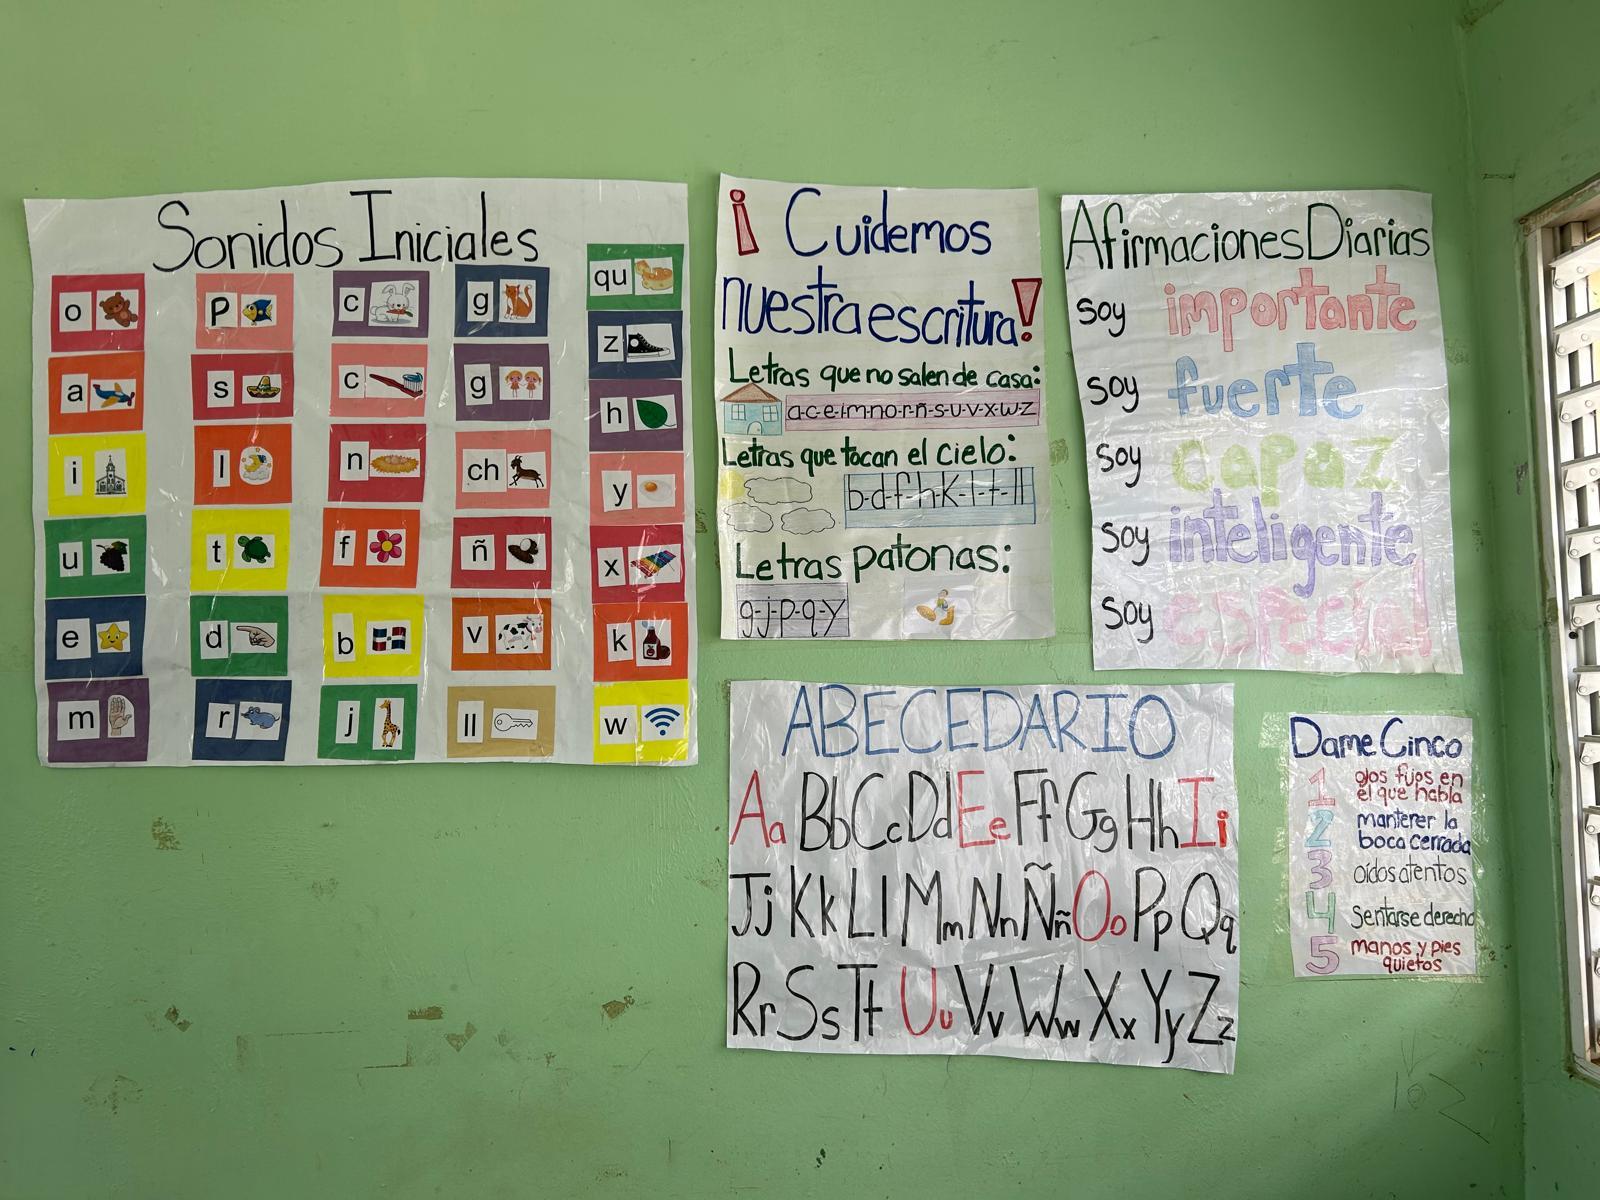 Sonidos Iniciales
o
a
i
u
e
m
p
s
l
t
d
r
c
c
n
f
b
j
g
g
ch
ñ
v
ll
qu
z
h
y
x
k
w
¡Cuidemos
nuestra escritura!
Letras que no salen de casa:
a-c-e-i-m-n-o-r-ñ-s-u-v-x-w-z
Letras que tocan el cielo:
b-d-f-h-k-l-t-ll
Letras patonas:
g-j-p-q-y
Afirmaciones Diarias
soy importante
soy fuerte
soy capaz
soy inteligente
soy especial
ABECEDARIO
Aa Bb Cc Dd Ee Ff Gg Hh Ii
Jj Kk Ll Mm Nn Ññ Oo Pp Qq
Rr Ss Tt Uu Vv Ww Xx Yy Zz
Dame Cinco
1 ojos fijos en
el que habla
2 mantener la
boca cerrada
3 oídos atentos
4 Sentarse derecho
5 manos y pies
quietos